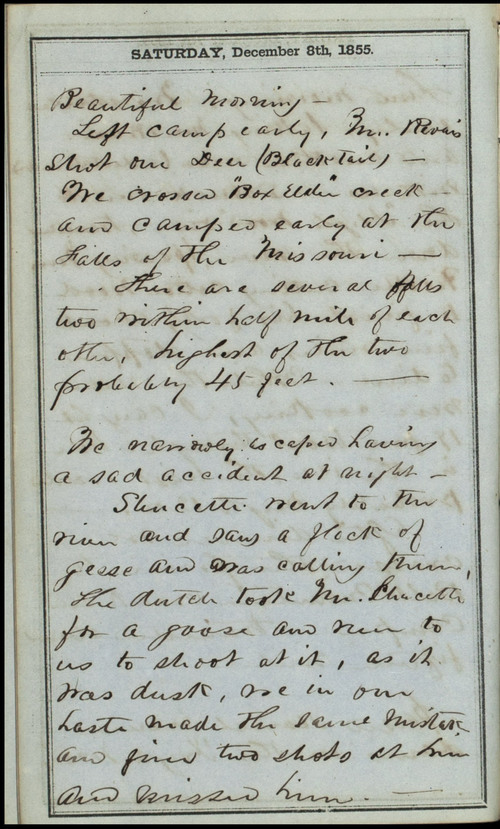 SATURDAY, December 8th, 1855.
Beautiful morning –
Left camp early, Mr. Revais
shot one Deer (Blacktail) –
We crossed "Box Elder" creek –
and camped early at the
Falls of the Missouri –
There are several falls
two within half mile of each
other, highest of the two
probably 45 feet. –
We narrowly escaped having
a sad accident at night –
went to the
river and saw a flock of
geese and was calling them,
the dutch took Mr.
for a goose and run to
us to shoot at it, as it
was dusk, we in our
haste made the same mistake
and fired two shots at him
and missed him. –